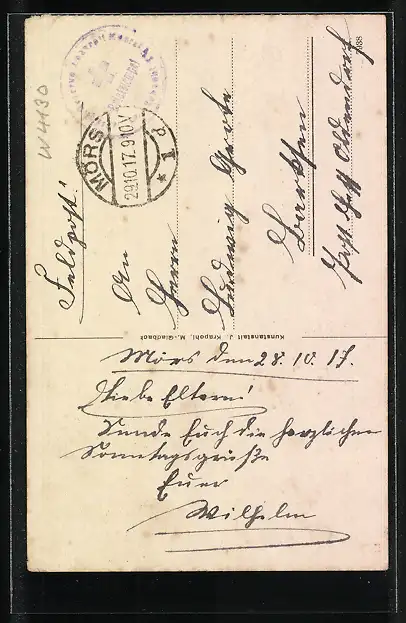 W4130
MÖRS
29.10.17.9-10V.
* 1 d
Feldpost!
An
Herrn
Ludwig Grote
Barksen
Post Hess. Oldendorf
Kunstanstalt J. Krapohl, M.-Gladbach
Mörs den 28.10.17.
Liebe Eltern!
Sende Euch die herzlichen
Sonntagsgrüße
Euer
Wilhelm